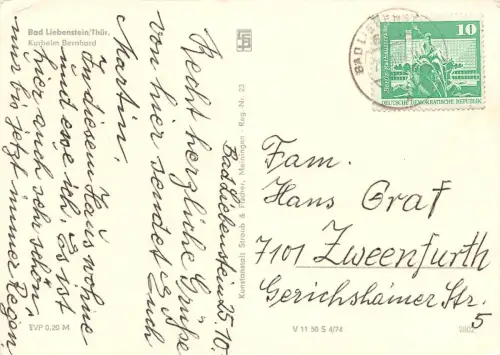 Bad Liebenstein/Thür.
Kurheim Bernhard
Bad Liebenstein 25.10.
Recht herzliche Grüße
von hier sendet Euch
Martin.
In diesem Haus wohne
und esse ich. Es ist
hier auch sehr schön,
nur bis jetzt immer Regen
EVP 0,20 M
Kunstanstalt Straub & Fischer, Meiningen - Reg.-Nr. 23
V 11 50 S 4/74
BAD
10
DEUTSCHE DEMOKRATISCHE REPUBLIK
Fam.
Hans Graf
7101 Zweenfurth
Gerichshainer Str.
5